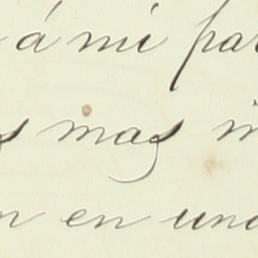 á mi par
s mas i
n en una